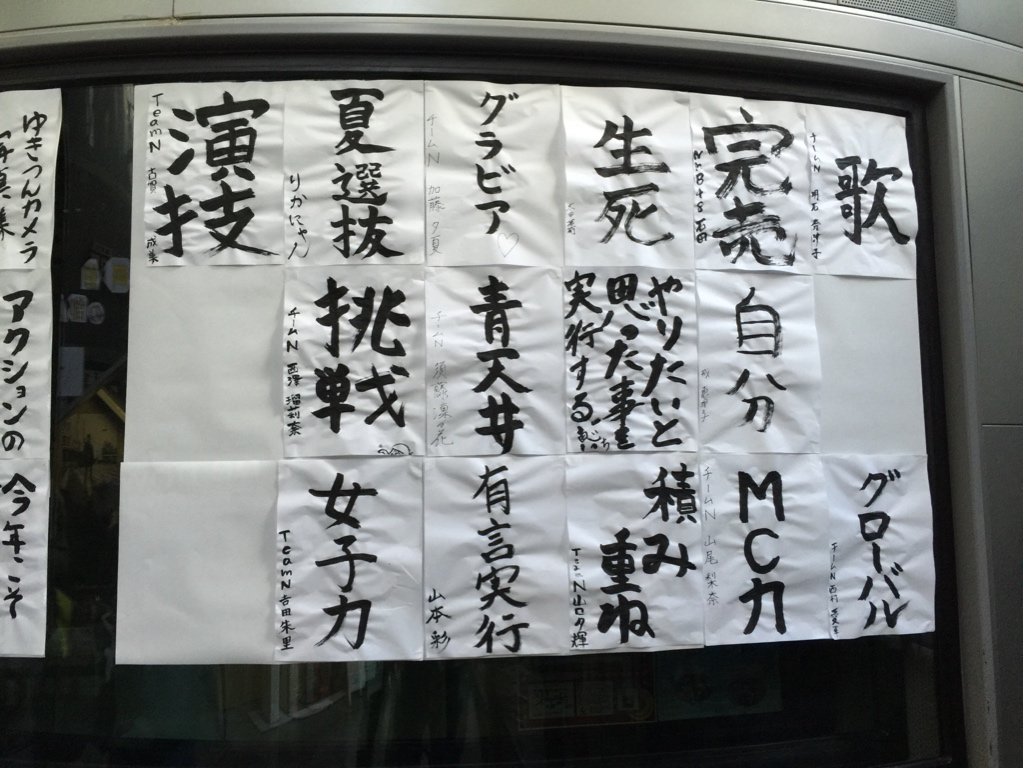 歌
チームN
完売
NMB48
生死
グラビア
チームN 加藤夕夏
夏選抜
りかにゃん
演技
TeamN 古賀成美
自分
やりたいと
思った事を
実行する
青天井
チームN 須藤凜々花
挑戦
チームN 西澤瑠莉奈
グローバル
チームN 西村愛華
MC力
チームN 山尾梨奈
積み
重ね
TeamN 山口夕輝
有言実行
山本彩
女子力
TeamN 吉田朱里
ゆきつんカメラ
アクションの
今年こそ